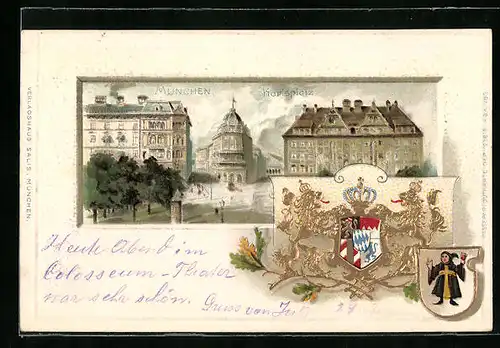 MÜNCHEN
Karlsplatz
VERLAGSHAUS SALIS MÜNCHEN.
Heute Abend im
Colosseum-Theater
war sehr schön. Gruss von